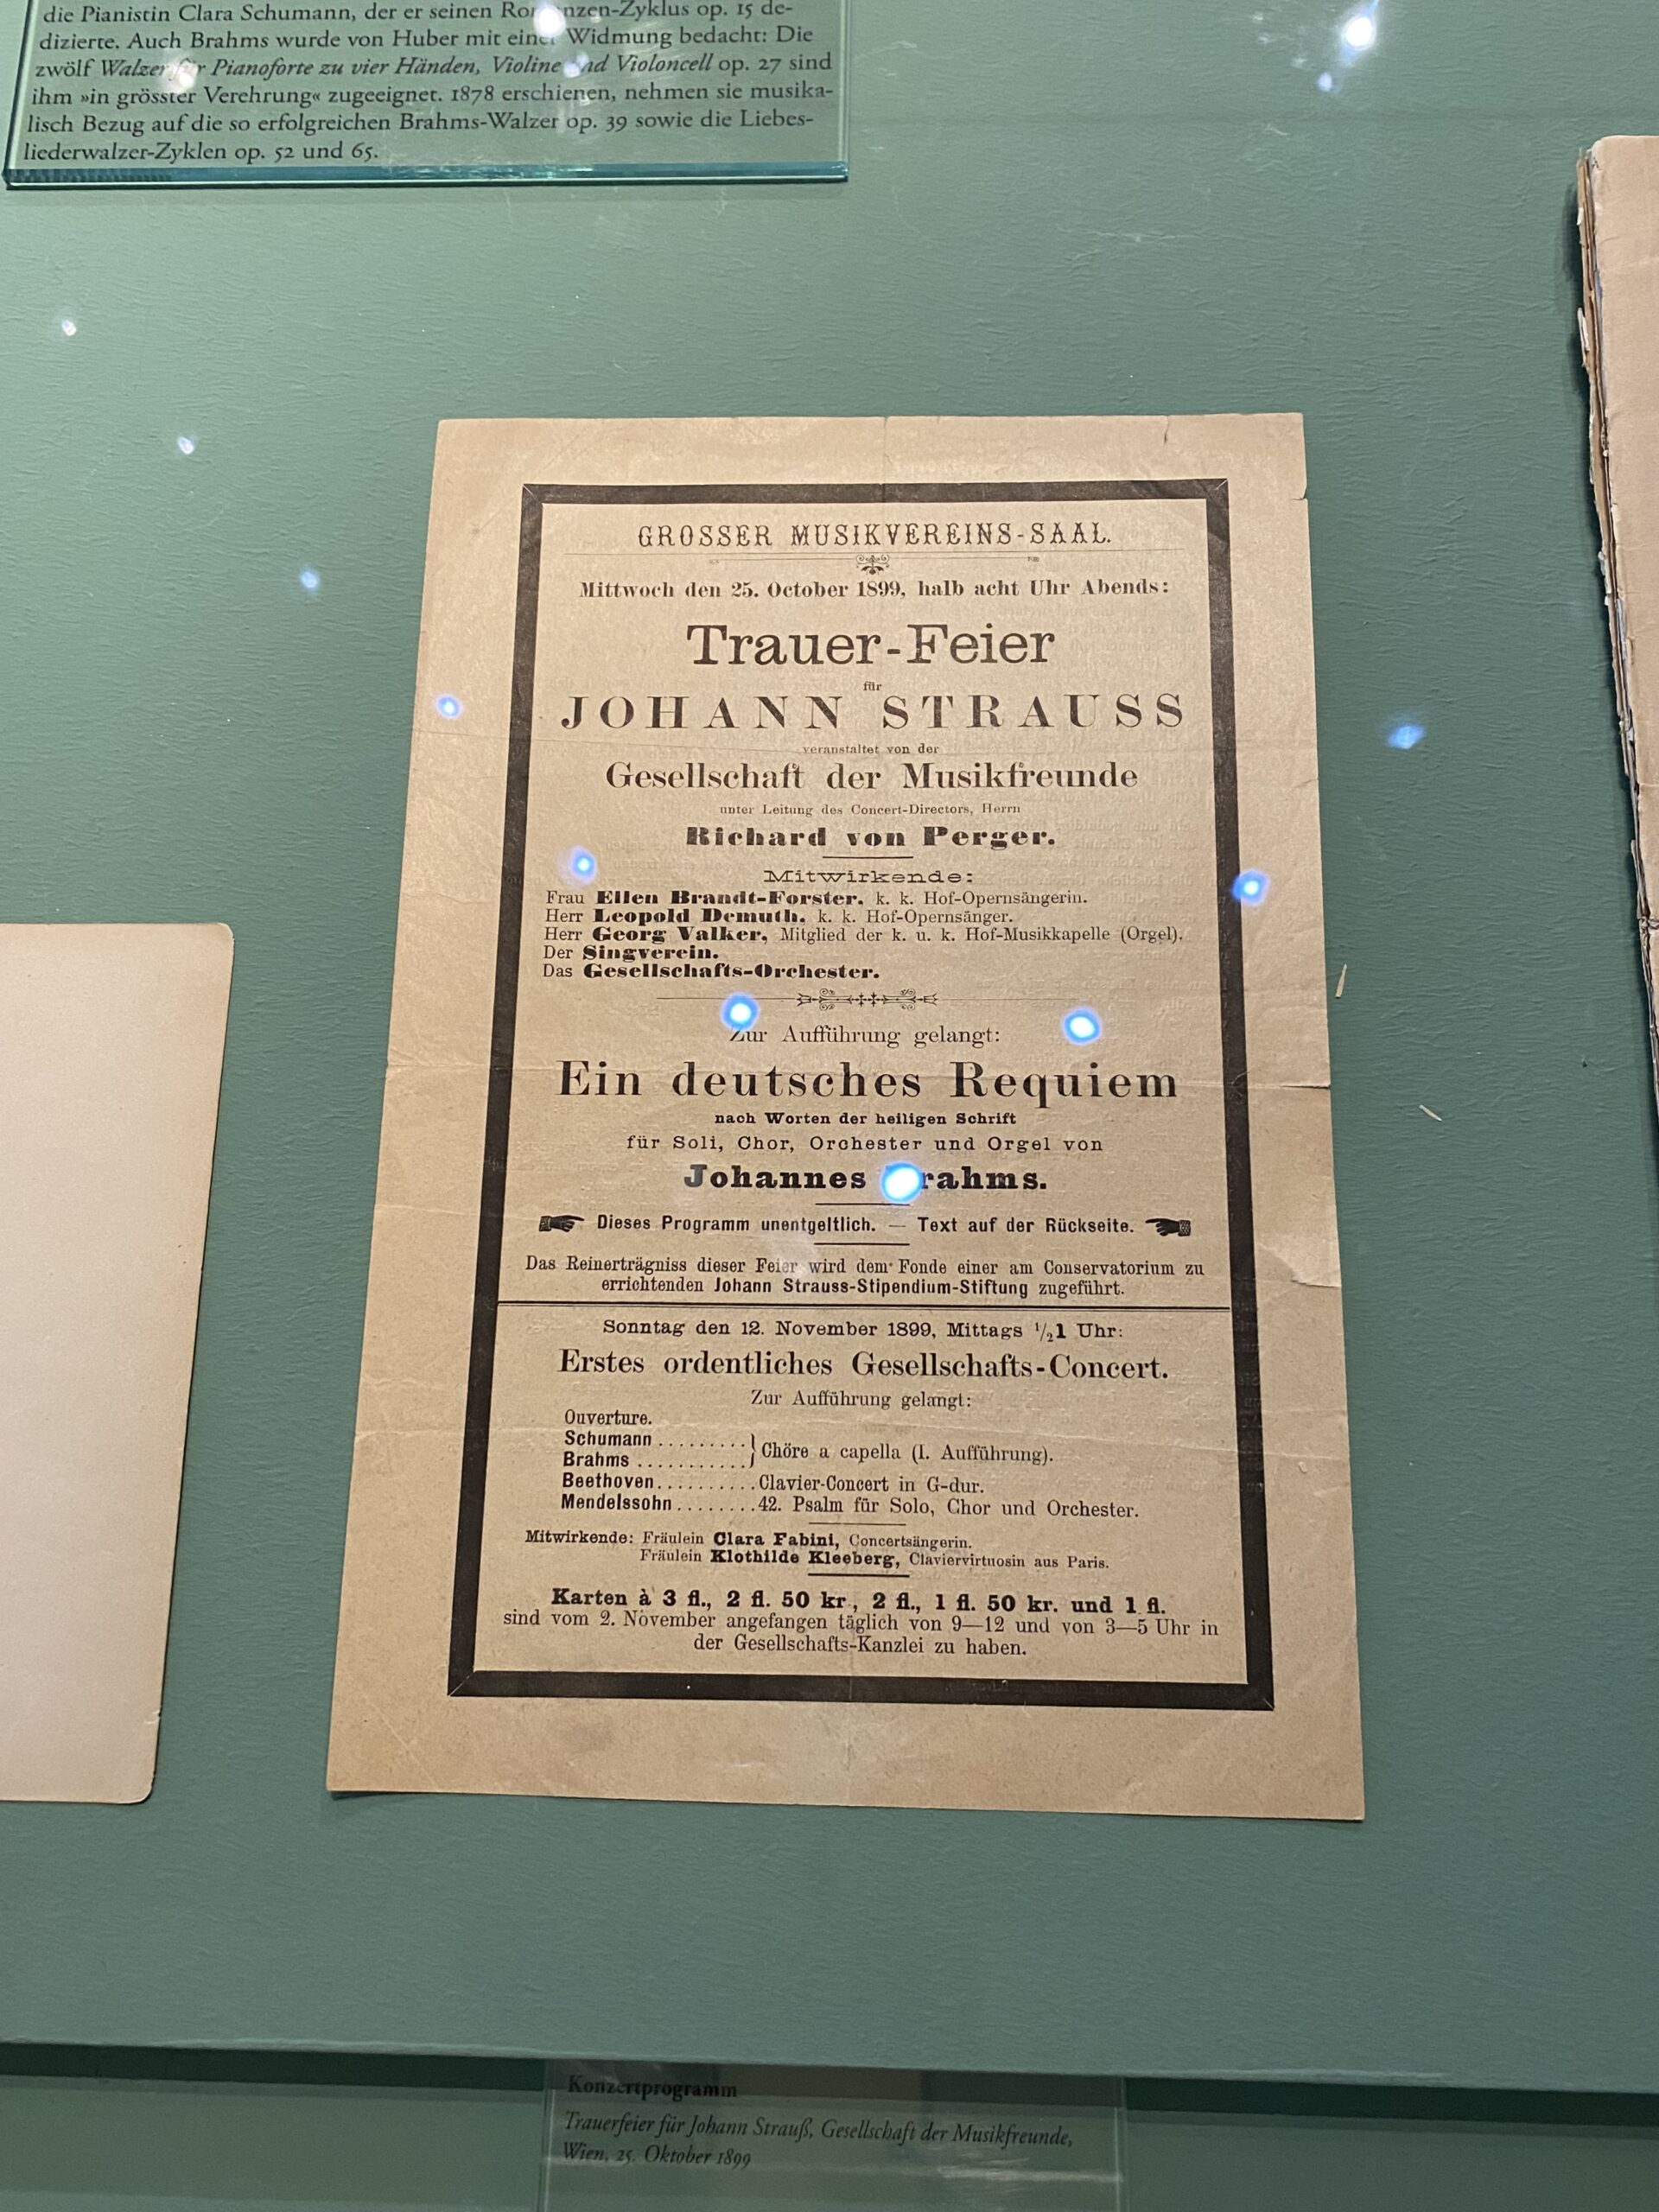 die Pianistin Clara Schumann, der er seinen Romanzen-Zyklus op. 15 de-
dizierte. Auch Brahms wurde von Huber mit einer Widmung bedacht: Die
zwölf Walzer für Pianoforte zu vier Händen, Violine und Violoncell op. 27 sind
ihm »in grösster Verehrung« zugeeignet. 1878 erschienen, nehmen sie musika-
lisch Bezug auf die so erfolgreichen Brahms-Walzer op. 39 sowie die Liebes-
liederwalzer-Zyklen op. 52 und 65.
GROSSER MUSIKVEREINS-SAAL.
Mittwoch den 25. October 1899, halb acht Uhr Abends:
Trauer-Feier
für
JOHANN STRAUSS
veranstaltet von der
Gesellschaft der Musikfreunde
unter Leitung des Concert-Directors, Herrn
Richard von Perger.
Mitwirkende:
Frau Ellen Brandt-Forster, k. k. Hof-Opernsängerin.
Herr Leopold Demuth, k. k. Hof-Opernsänger.
Herr Georg Valker, Mitglied der k. u. k. Hof-Musikkapelle (Orgel).
Der Singverein.
Das Gesellschafts-Orchester.
Zur Aufführung gelangt:
Ein deutsches Requiem
nach Worten der heiligen Schrift
für Soli, Chor, Orchester und Orgel von
Johannes Brahms.
Dieses Programm unentgeltlich. — Text auf der Rückseite.
Das Reinerträgniss dieser Feier wird dem Fonde einer am Conservatorium zu
errichtenden Johann Strauss-Stipendium-Stiftung zugeführt.
Sonntag den 12. November 1899, Mittags 1/2 1 Uhr:
Erstes ordentliches Gesellschafts-Concert.
Zur Aufführung gelangt:
Ouverture.
Schumann .........
Brahms ........... } Chöre a capella (I. Aufführung).
Beethoven..........Clavier-Concert in G-dur.
Mendelssohn........42. Psalm für Solo, Chor und Orchester.
Mitwirkende: Fräulein Clara Fabini, Concertsängerin.
Fräulein Klothilde Kleeberg, Claviervirtuosin aus Paris.
Karten à 3 fl., 2 fl. 50 kr., 2 fl., 1 fl. 50 kr. und 1 fl.
sind vom 2. November angefangen täglich von 9—12 und von 3—5 Uhr in
der Gesellschafts-Kanzlei zu haben.
Konzertprogramm
Trauerfeier für Johann Strauß, Gesellschaft der Musikfreunde,
Wien, 25. Oktober 1899